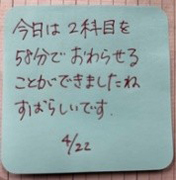 今日は2科目を
58分でおわらせる
ことができましたね
すばらしいです.
4/22